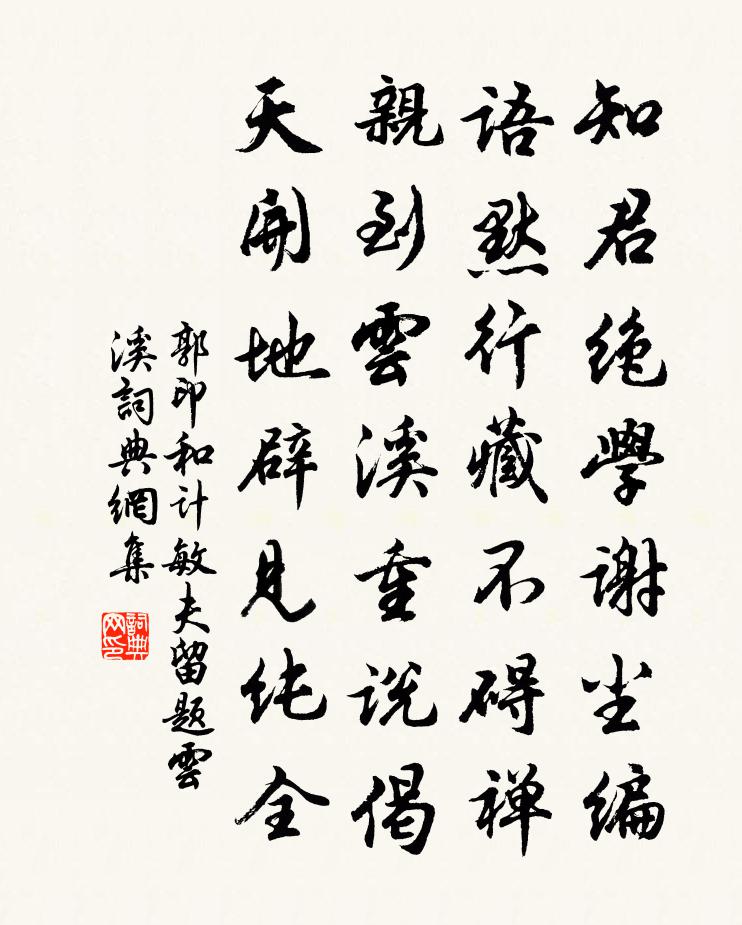 知君绝學謝尘编
語默行藏不碍禅
親到雲溪重说偈
天開地辟見纯全
郭印和计敏夫留题雲
溪詞典網集
詞典网印